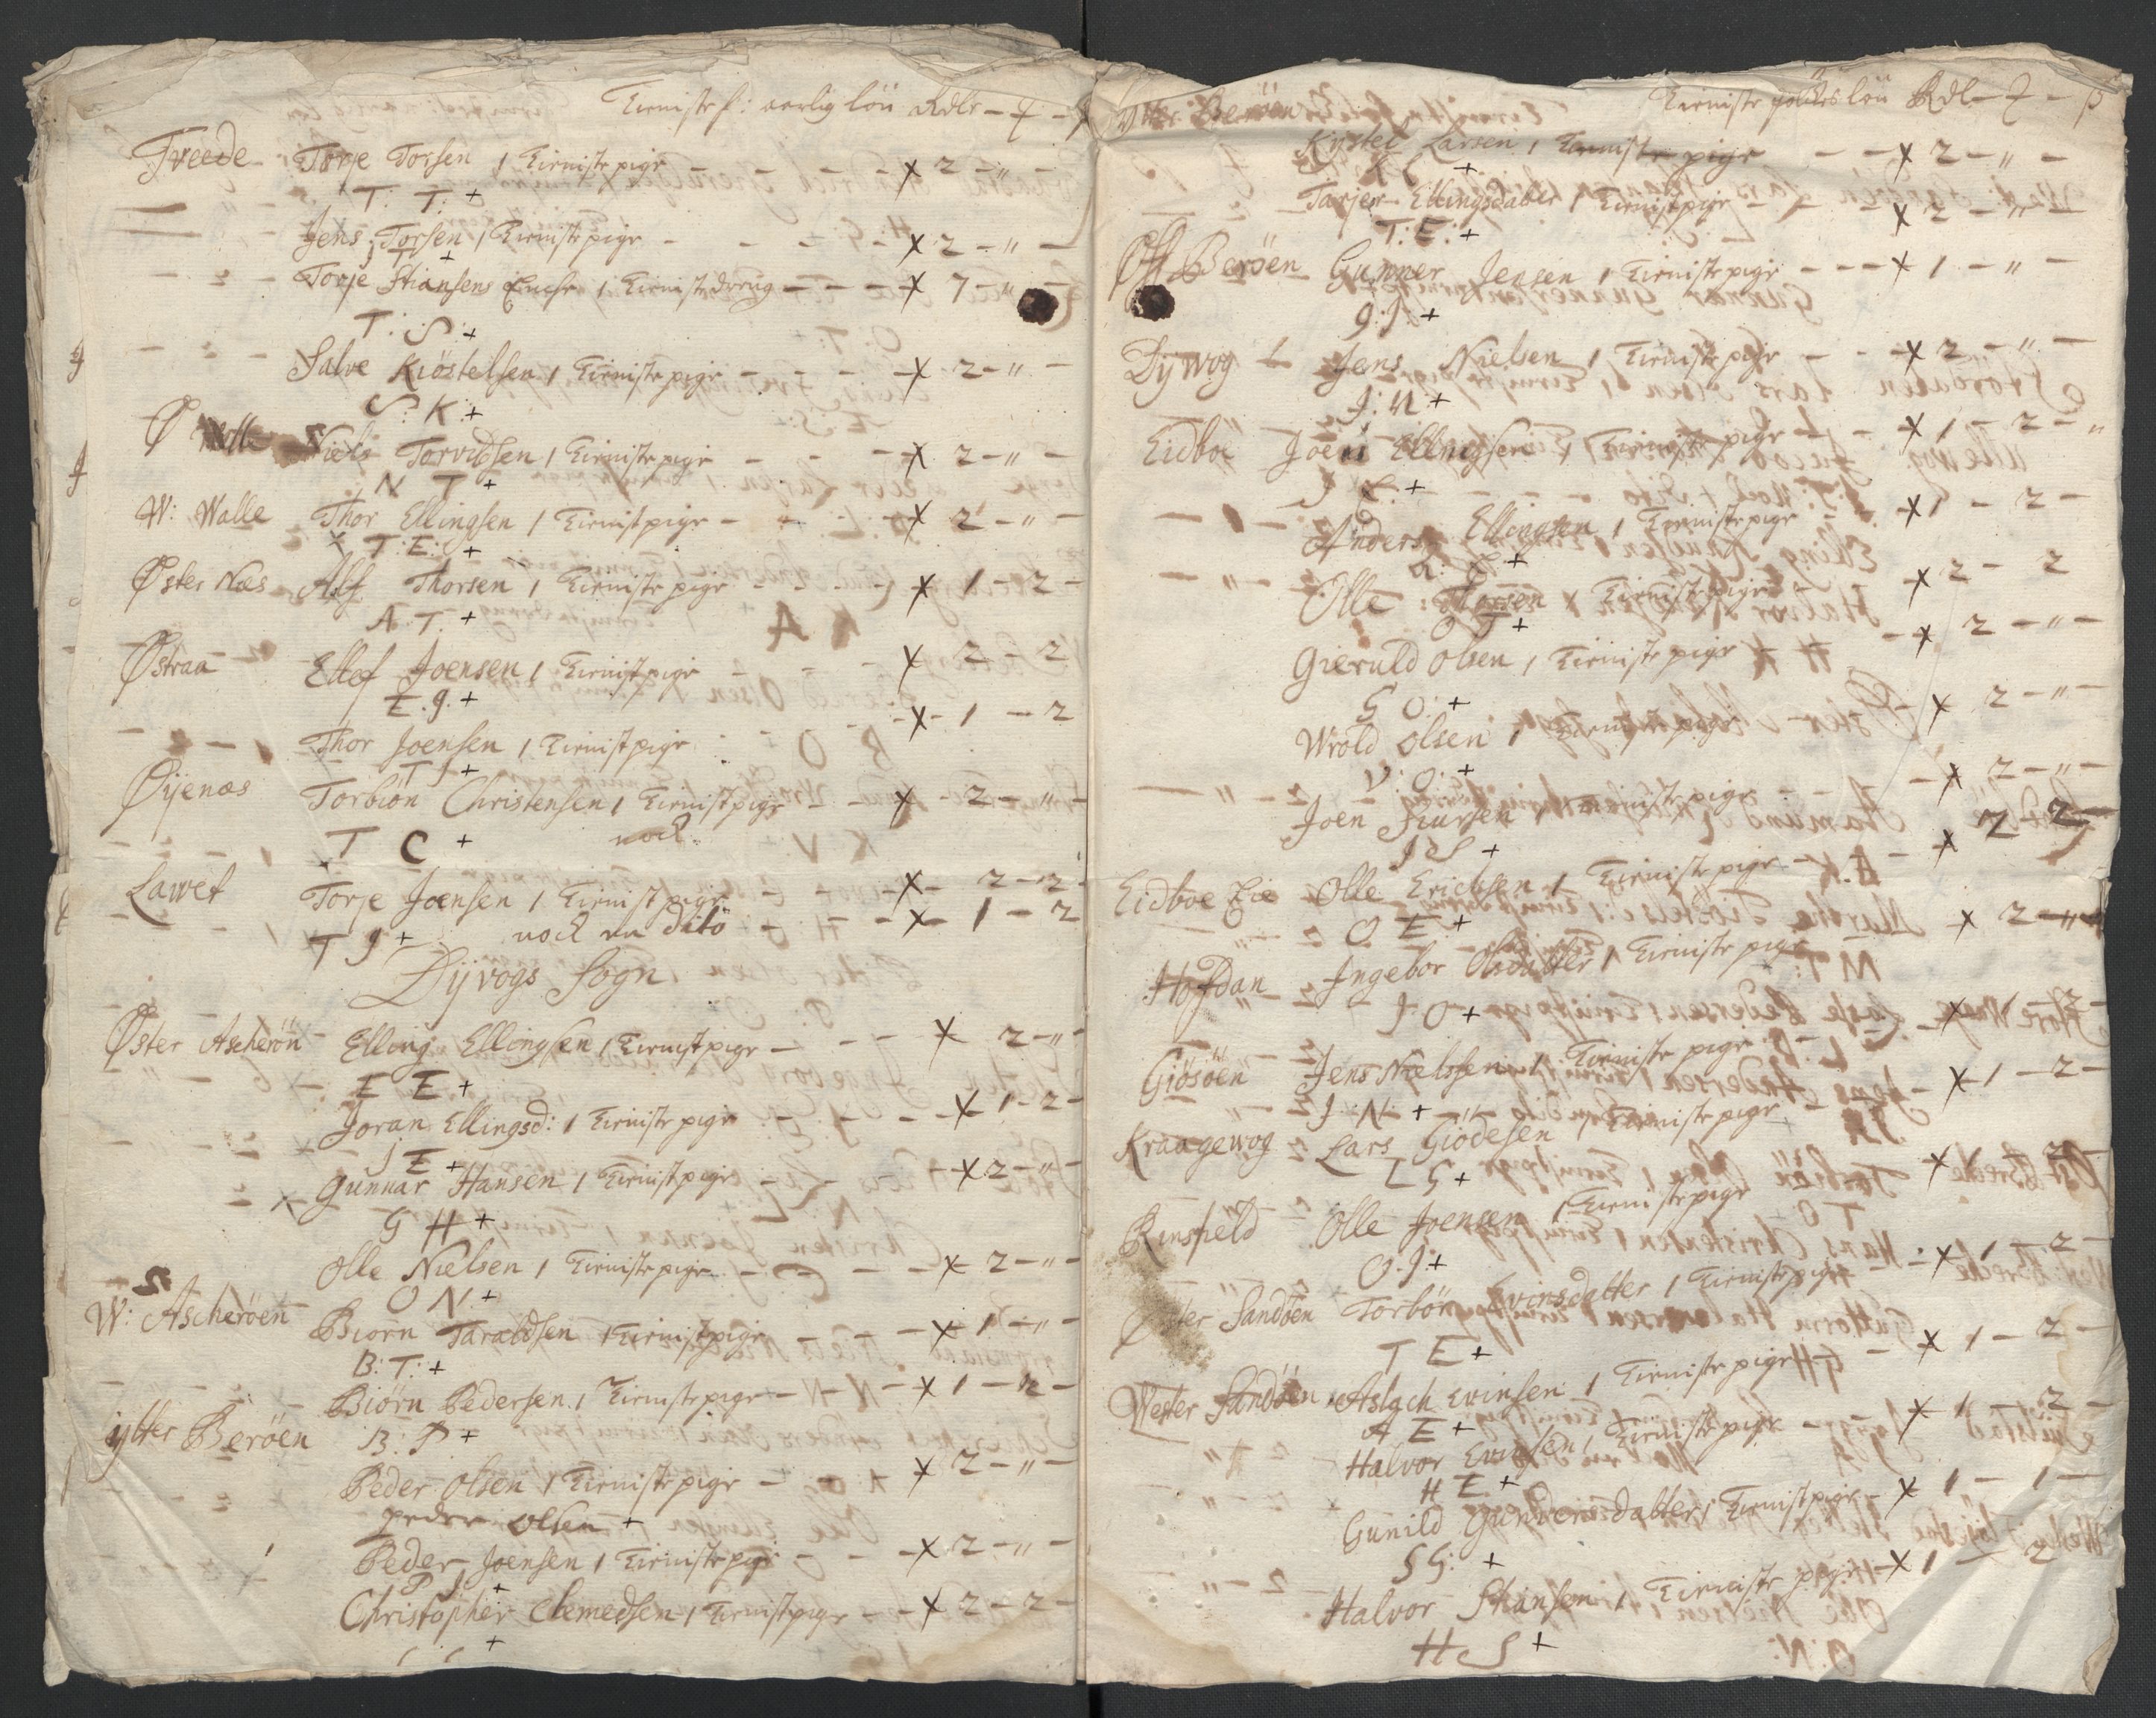 Tienistef: aarlig lön Rdlr - ƒ - ß
Tveede Torje Torsen / Tienistepige - - - x 2 - " -
T: T: +
Jens Torsen / Tieniste pige - - - x 2 - " -
J T +
Torje Stiansens / Tieniste dreng - - - x 7 - "
T: S: +
Salve Kiöstelsen / Tieniste pige - - - x 2 - " -
S: K: +
Ø Walle Niels Torvidsen / Tieniste pige - - - x 2 - " -
N T +
W: Walle Thor Ellingsen / Tienist pige - - - x 2 - " -
T: E: +
Øster Næs Alf Thorsen / Tieniste pige - - - x 1 - 2 -
A T. +
Østraa Ellef Joensen / Tienist pige x 2 - 2
E. J. +
Thor Joensen / Tienist pige - x - 1 - 2
T J +
Øÿenæs Torbiön Christensen / Tienist pige - x - 2 - " -
T C + nock
Lawet Torje Joensen / Tienist pige - x - 2 - 2
T J + nock en dito - x - 1 - 2
Dÿvogs Sogn
Øster Ascherön Elling Ellingsen / Tienist pige - - - x 2 - " -
E E +
Joran Ellingsd: / Tieniste pige - - - x 1 - 2 -
J E +
Gunnar Hansen / Tienist pige - - x 2 - " -
G H +
Olle Nielsen / Tieniste pige - - - x 2 - " -
O N. +
W: Ascheröen Biorn Taraldsen / Tienist pige - - x 1 - " -
B: T: +
Biörn Pedersen / Tieniste pige - - x 1 - 2 -
ÿtter Beröen B: P +
Peder Olsen / Tieniste pige - x 2 - " -
peder olsen +
Peder Joensen / Tieniste pige - - x 2 - " -
P J +
Christopher Clemedsen / Tienist pige - - x 2 - 2 -
C C +
ÿtter Beröen Tieniste lön Rdl - ƒ - ß
Kystel Larsen / Tieniste pige - - x 2 - " -
K L +
Tarjer Ellingsdatter / Tienist pige - x 2 - " -
T: E: +
Øst Beröen Gunner Jensen / Tieniste pige - - - x 1 - " -
G: J: +
Dÿwog Jens Nielsen / Tieniste pige - - - x 2 - " -
J: N: +
Eidboe Joen Ellingsen / Tieniste pige - - x 1 - 2 - "
J E: +
Anders Ellingsen / Tieniste pige - x 1 - 2 -
A: E: +
Olle Torsen / Tieniste pige - x 2 - 2
O T +
Gieruld Olsen / Tieniste pige - x 2 - " -
G O: +
Wrold Olsen / Tieniste pige - x 2 - " -
V: O: +
Joen Siursen / Tieniste pige - x 2 - " -
J S +
Eidboe Eie Olle Erichsen / Tieniste pige - x 2 2
O E +
Hofdan Ingebor Olsdatter / Tieniste pige x 2 - "
J O +
Giösöen Jens Nielssen / Tieniste pige - x 1 - 2 -
J: N: +
Kraagewog Lars Giodesen / Tieniste pige - x 1 - 2 -
L G +
Rinsfield Olle Joensen / Tieniste pige - x 1 - 2
O. J +
Øster Sandöen Torbör Evinsdatter / Tieniste pige - x 1 - 2 -
T E +
Wester Sandöen Aslach Evinsen / Tieniste pige - x 1 - 2 -
A E +
Halvor Evinsen / Tieniste pige - x 1 - 2 -
H E +
Gunild Gundersdatter / Tienist pige - x 1 - 1 -
G G: +
Halvor Stiansen / Tieniste pige - x 1 - 2
H S +